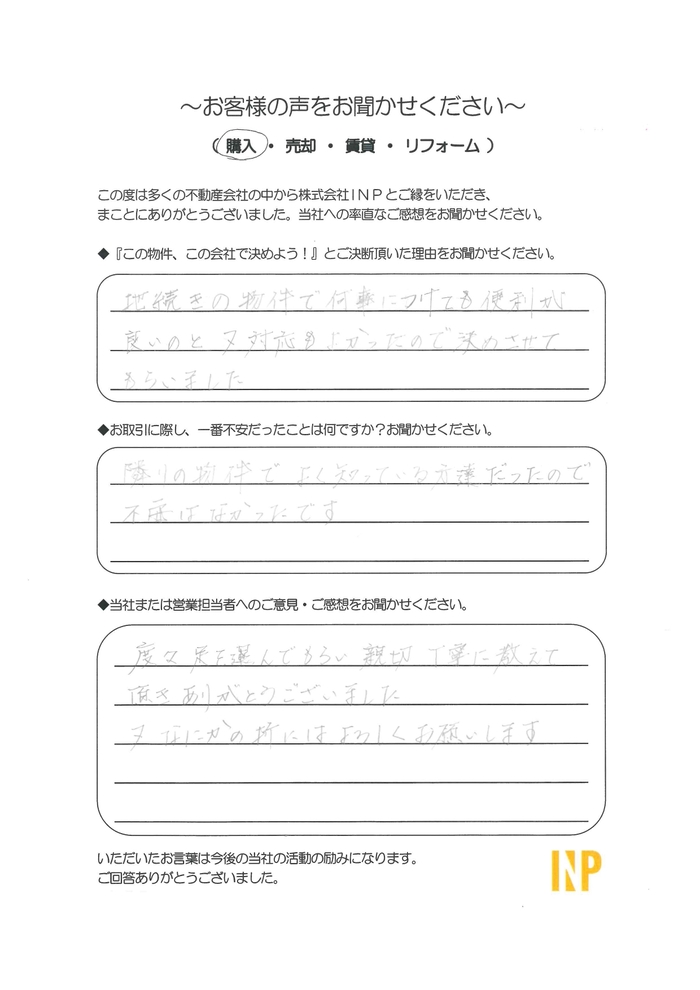 ～お客様の声をお聞かせください～
（ 購入 ・ 売却 ・ 賃貸 ・ リフォーム ）
この度は多くの不動産会社の中から株式会社ＩＮＰとご縁をいただき、
まことにありがとうございました。当社への率直なご感想をお聞かせください。
◆『この物件、この会社で決めよう！』とご決断頂いた理由をお聞かせください。
地続きの物件で何事につけても便利が
良いのと又対応もよかったので決めさせて
もらいました
◆お取引に際し、一番不安だったことは何ですか？お聞かせください。
隣りの物件でよく知っている方達だったので
不安はなかったです
◆当社または営業担当者へのご意見・ご感想をお聞かせください。
度々足を運んでもらい親切丁寧に教えて
頂きありがとうございました
又なにかの折にはよろしくお願いします
いただいたお言葉は今後の当社の活動の励みになります。
ご回答ありがとうございました。
INP